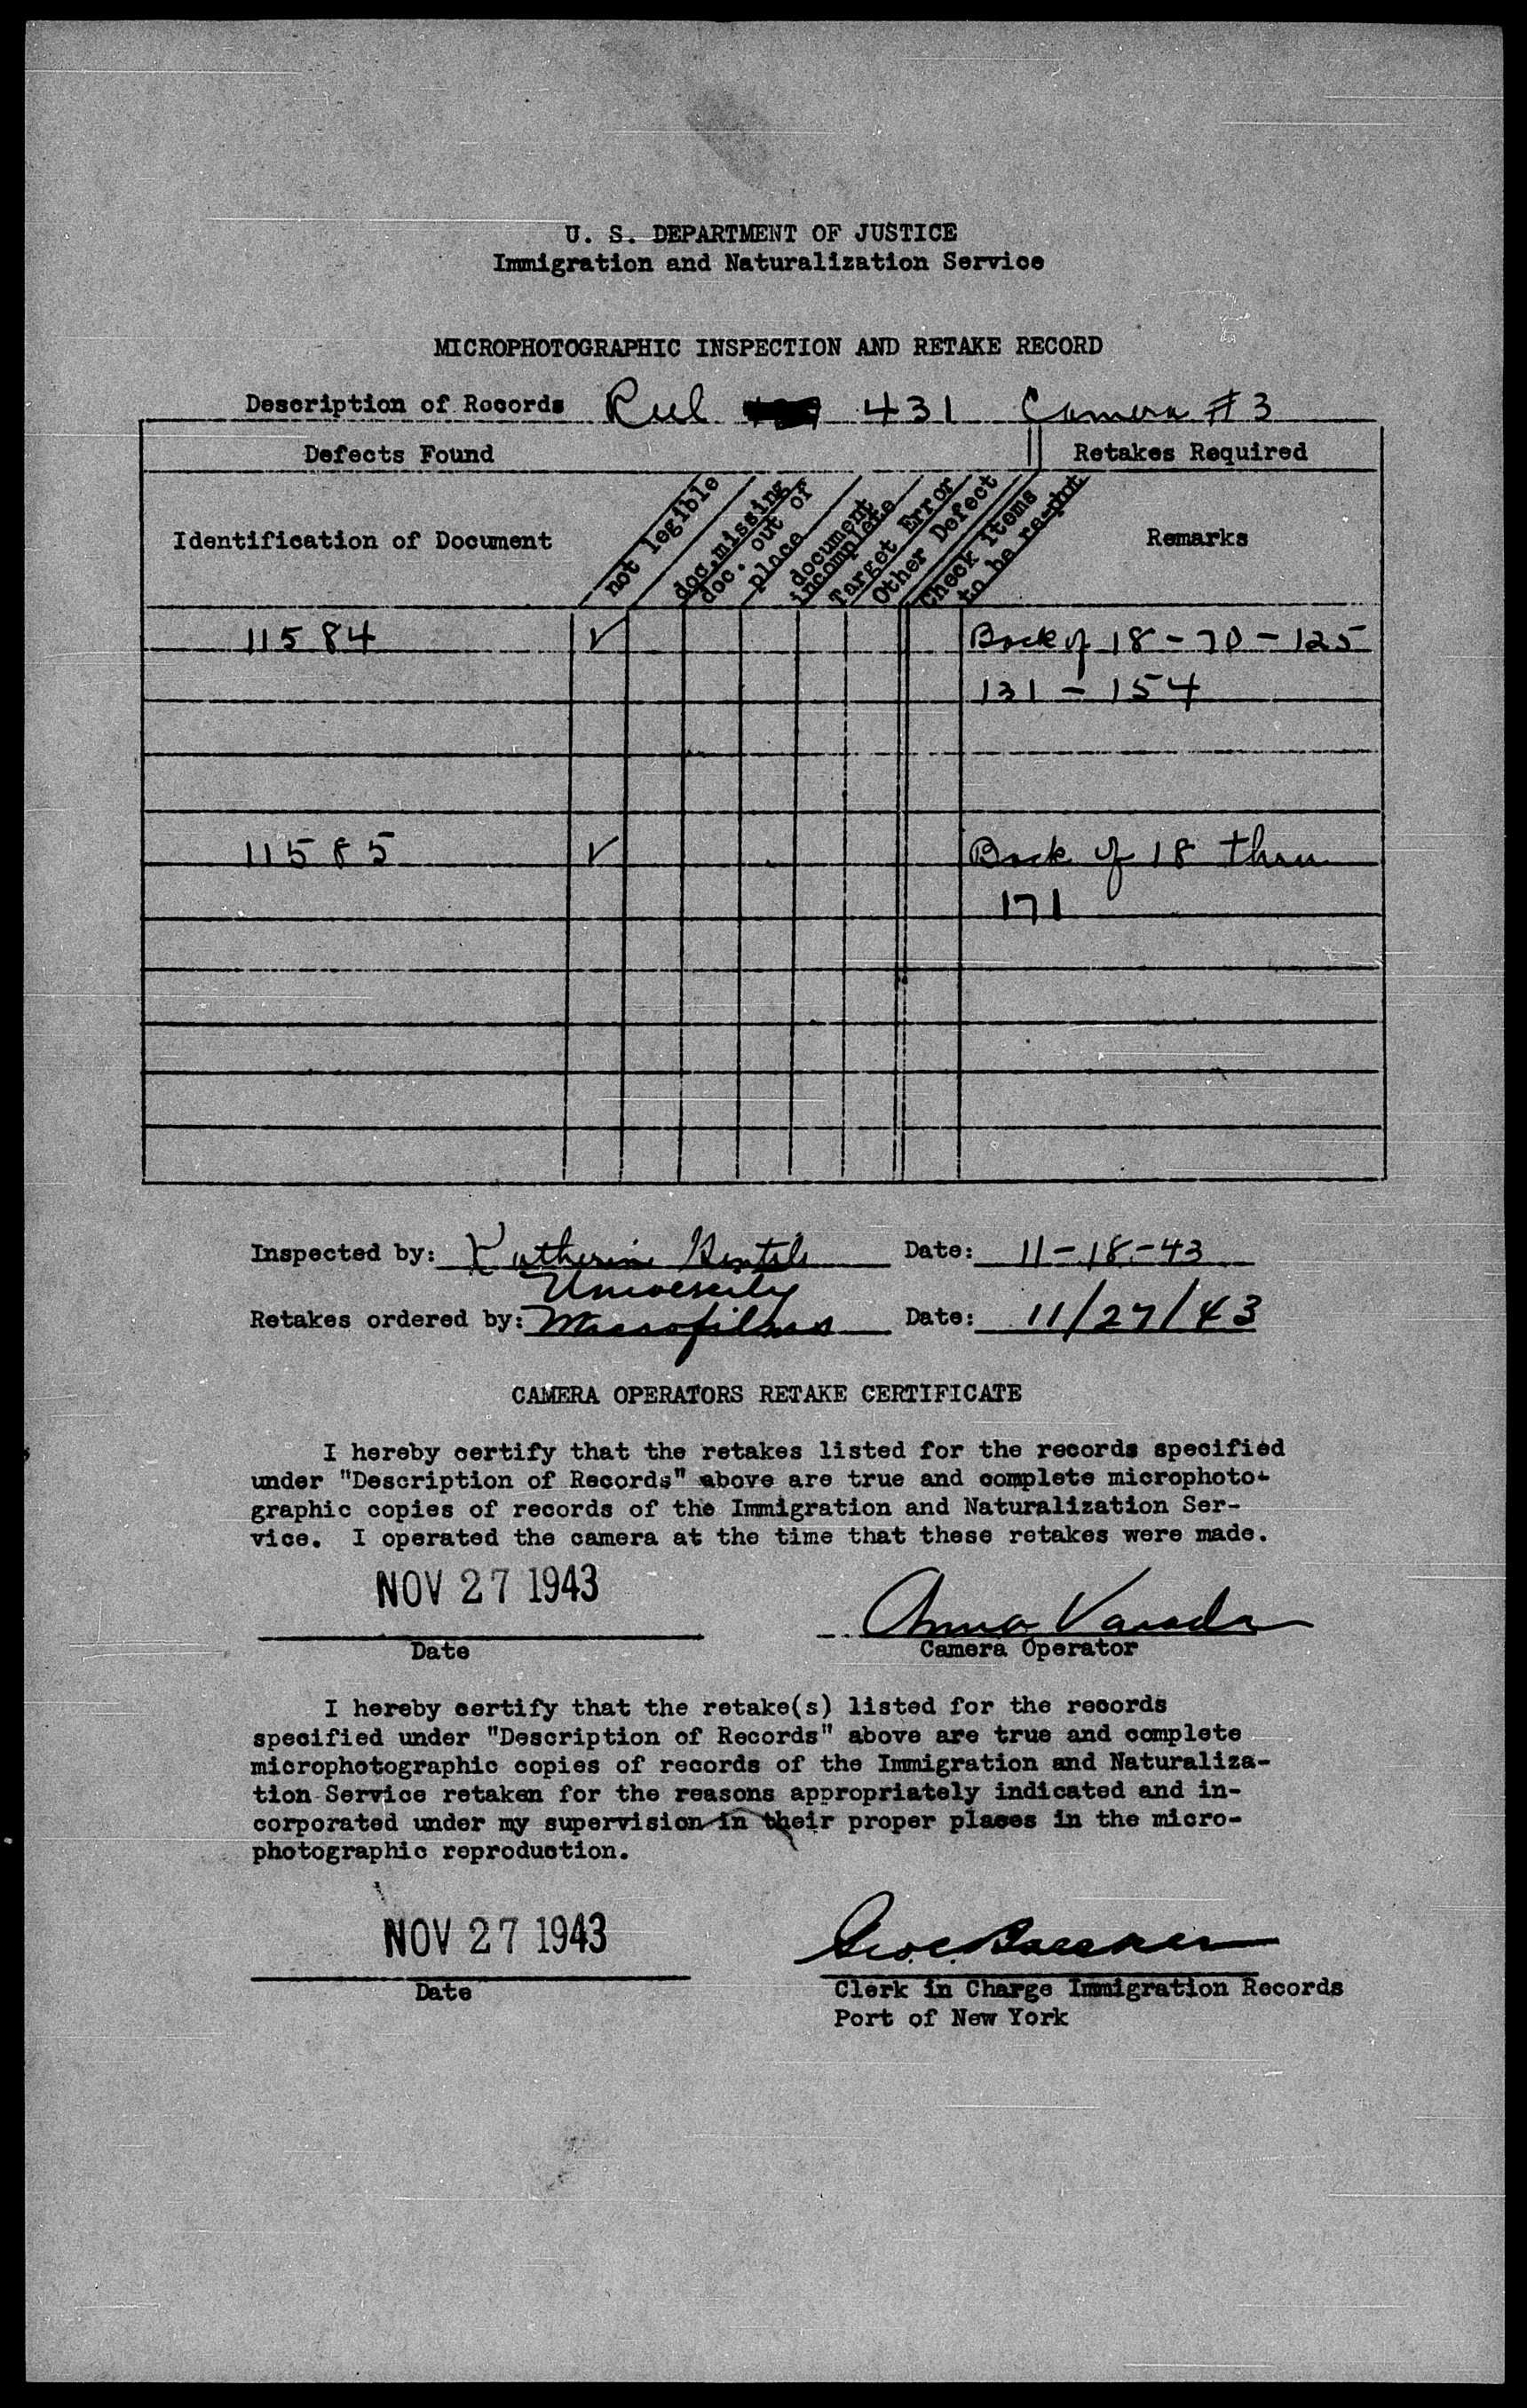 U. S. DEPARTMENT OF JUSTICE
Immigration and Naturalization Service
MICROPHOTOGRAPHIC INSPECTION AND RETAKE RECORD
Description of Records Reel 431 Camera #3
Defects Found
Retakes Required
Identification of Document
not legible
doc. missing
doc. out of
place
document
incomplete
Target Error
Other Defect
Check items
to be re-phot
Remarks
11584 ✓ Back of 18-70-125
131-154
11585 ✓ Back of 18 thru
171
Inspected by: Katherine Date: 11-18-43
University
Retakes ordered by: Microfilms Date: 11/27/43
CAMERA OPERATORS RETAKE CERTIFICATE
I hereby certify that the retakes listed for the records specified
under "Description of Records" above are true and complete microphoto-
graphic copies of records of the Immigration and Naturalization Ser-
vice. I operated the camera at the time that these retakes were made.
NOV 27 1943
Anna
Date
Camera Operator
I hereby certify that the retake(s) listed for the records
specified under "Description of Records" above are true and complete
microphotographic copies of records of the Immigration and Naturaliza-
tion Service retaken for the reasons appropriately indicated and in-
corporated under my supervision in their proper places in the micro-
photographic reproduction.
NOV 27 1943
Date
Clerk in Charge Immigration Records
Port of New York